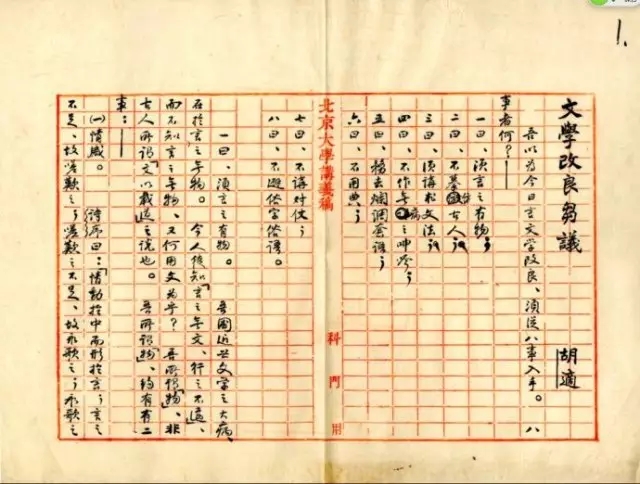 1.
文學改良芻議 胡適
吾以為今日言文學改良、須從八事入手。八
事者何?——
一曰、須言之有物;
二曰、不摹仿古人;
三曰、須講求文法;
四曰、不作無病之呻吟;
五曰、務去爛調套語;
六曰、不用典;
北京大學講義稿 科 門 用
七曰、不講對仗;
八曰、不避俗字俗語。
一曰、須言之有物。 吾國近世文學之大病,
在於言之無物。 今人徒知「言之無文、行之不遠」、
而不知言之無物、又何用文為乎? 吾所謂「物」、非
古人所謂「文以載道」之說也。 吾所謂「物」、約有二
事:——
(一)情感。 詩序曰:「情動於中而形於言;言之
不足、故嗟歎之;嗟歎之不足、故永歌之;永歌之